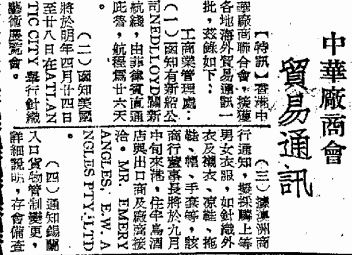 中華廠商會
貿易通訊
【特訊】香港中
華廠商聯合會,接獲
各地海外貿易通訊一
批,茲錄如下:
工商業管理處:
(一)函知有新紹公
司NEDLLOYD開新
航綫,由菲律賓直通
庇魯,航程為廿六天
。
(二)函知美國
將於明年四月廿四日
至廿八日在ATLAN
TIC CITY舉行針織
藝術展覽會。
(三)據澳洲商
行通知,擬採購上等
男女衣服,如針織外
衣及襯衣,涼鞋、拖
鞋、帽、手套等,該
商行董事長將於九月
中旬來港,住半島酒
店與出口商及廠商接
洽。MR. EMERY
ANGLES, E.W.A
NGLES PTY. LTD
。
(四)通知錫蘭
入口貨物管制變更,
詳細說明,存會備查